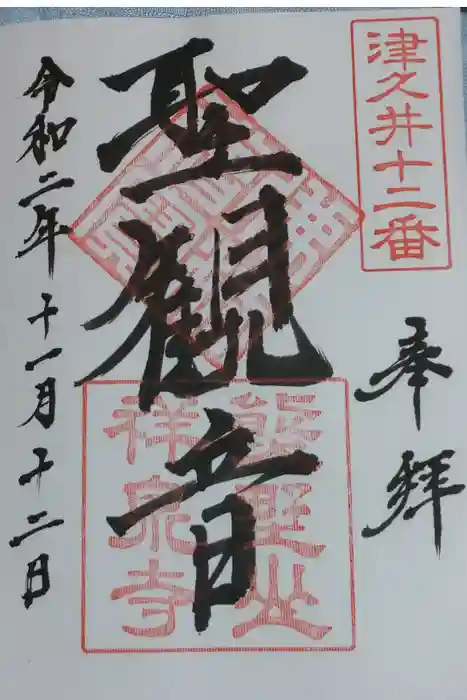 津久井十二番
奉拝
聖観音
熊野山
祥泉寺
令和二年 十一月 十二日